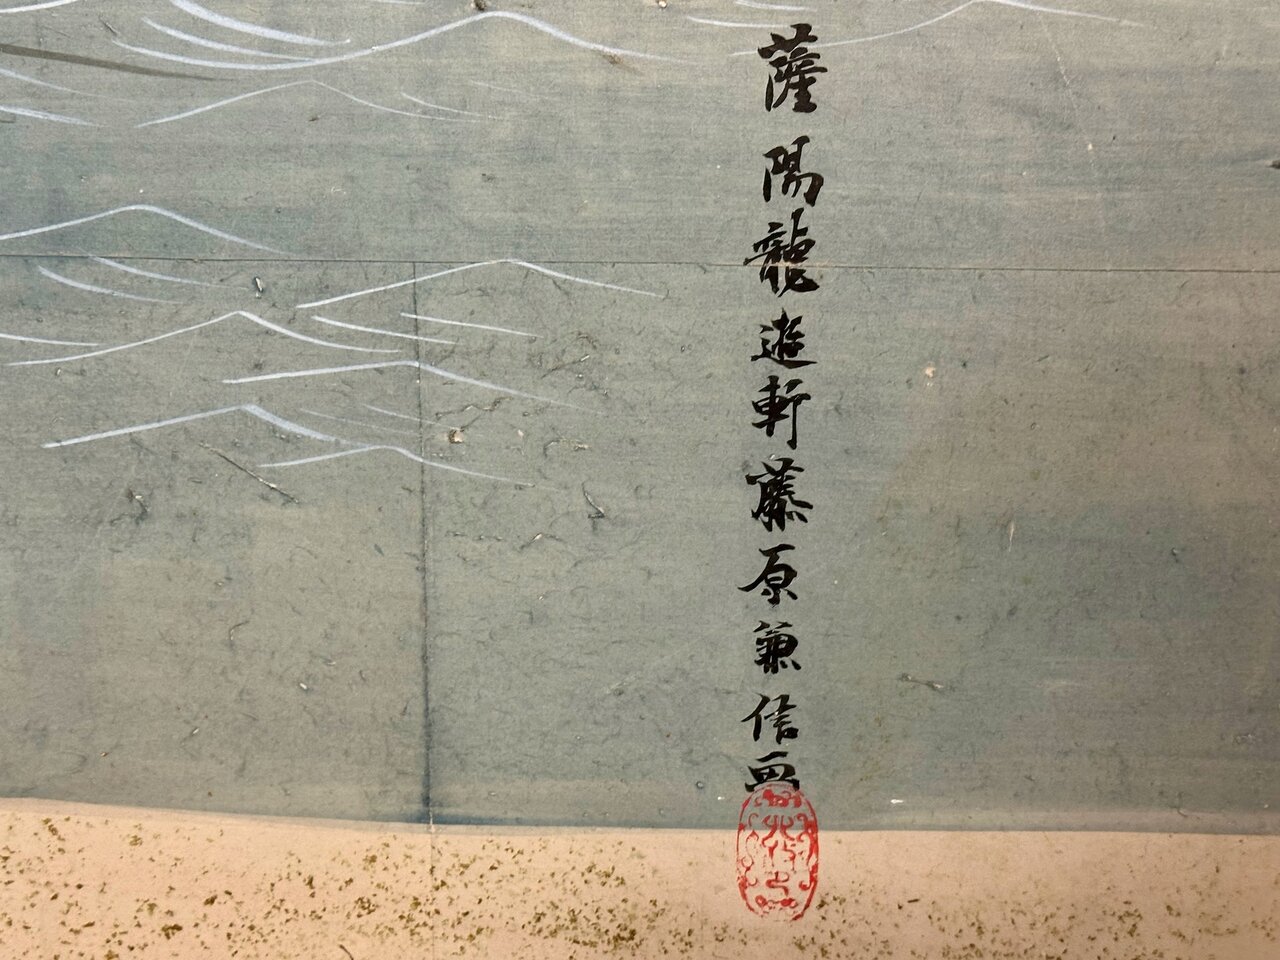 薩陽龍遊軒藤原兼信画